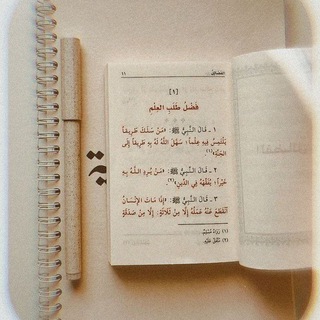 ١١
الفضائل
[١]
فَضْلُ طَلَبِ العِلْمِ
١ ـ قَالَ النَّبِيُّ ﷺ: «مَنْ سَلَكَ طَرِيقاً
يَلْتَمِسُ فِيهِ عِلْماً؛ سَهَّلَ اللَّهُ لَهُ بِهِ طَرِيقاً إِلَى
الجَنَّةِ»(١).
٢ ـ قَالَ النَّبِيُّ ﷺ: «مَنْ يُرِدِ اللَّهُ بِهِ
خَيْراً؛ يُفَقِّهْهُ فِي الدِّينِ»(٢).
٣ ـ قَالَ النَّبِيُّ ﷺ: «إِذَا مَاتَ الإِنْسَانُ
انْقَطَعَ عَنْهُ عَمَلُهُ إِلَّا مِنْ ثَلَاثَةٍ: إِلَّا مِنْ صَدَقَةٍ
(١) رَوَاهُ مُسْلِمٌ.
(٢) مُتَّفَقٌ عَلَيْهِ.